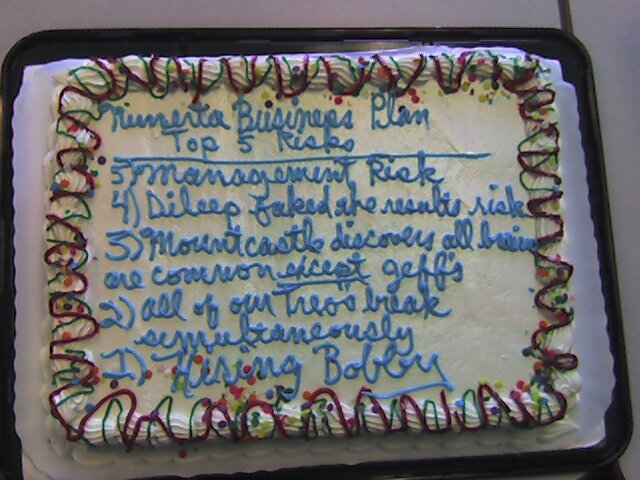 Numenta Business Plan
Top 5 Risks
5) Management Risk
4) Dileep faked the results risk
3) Mountcastle discovers all brains
are common except geff's
2) all of our Treo's break
simultaneously
1) Hiring Bobby